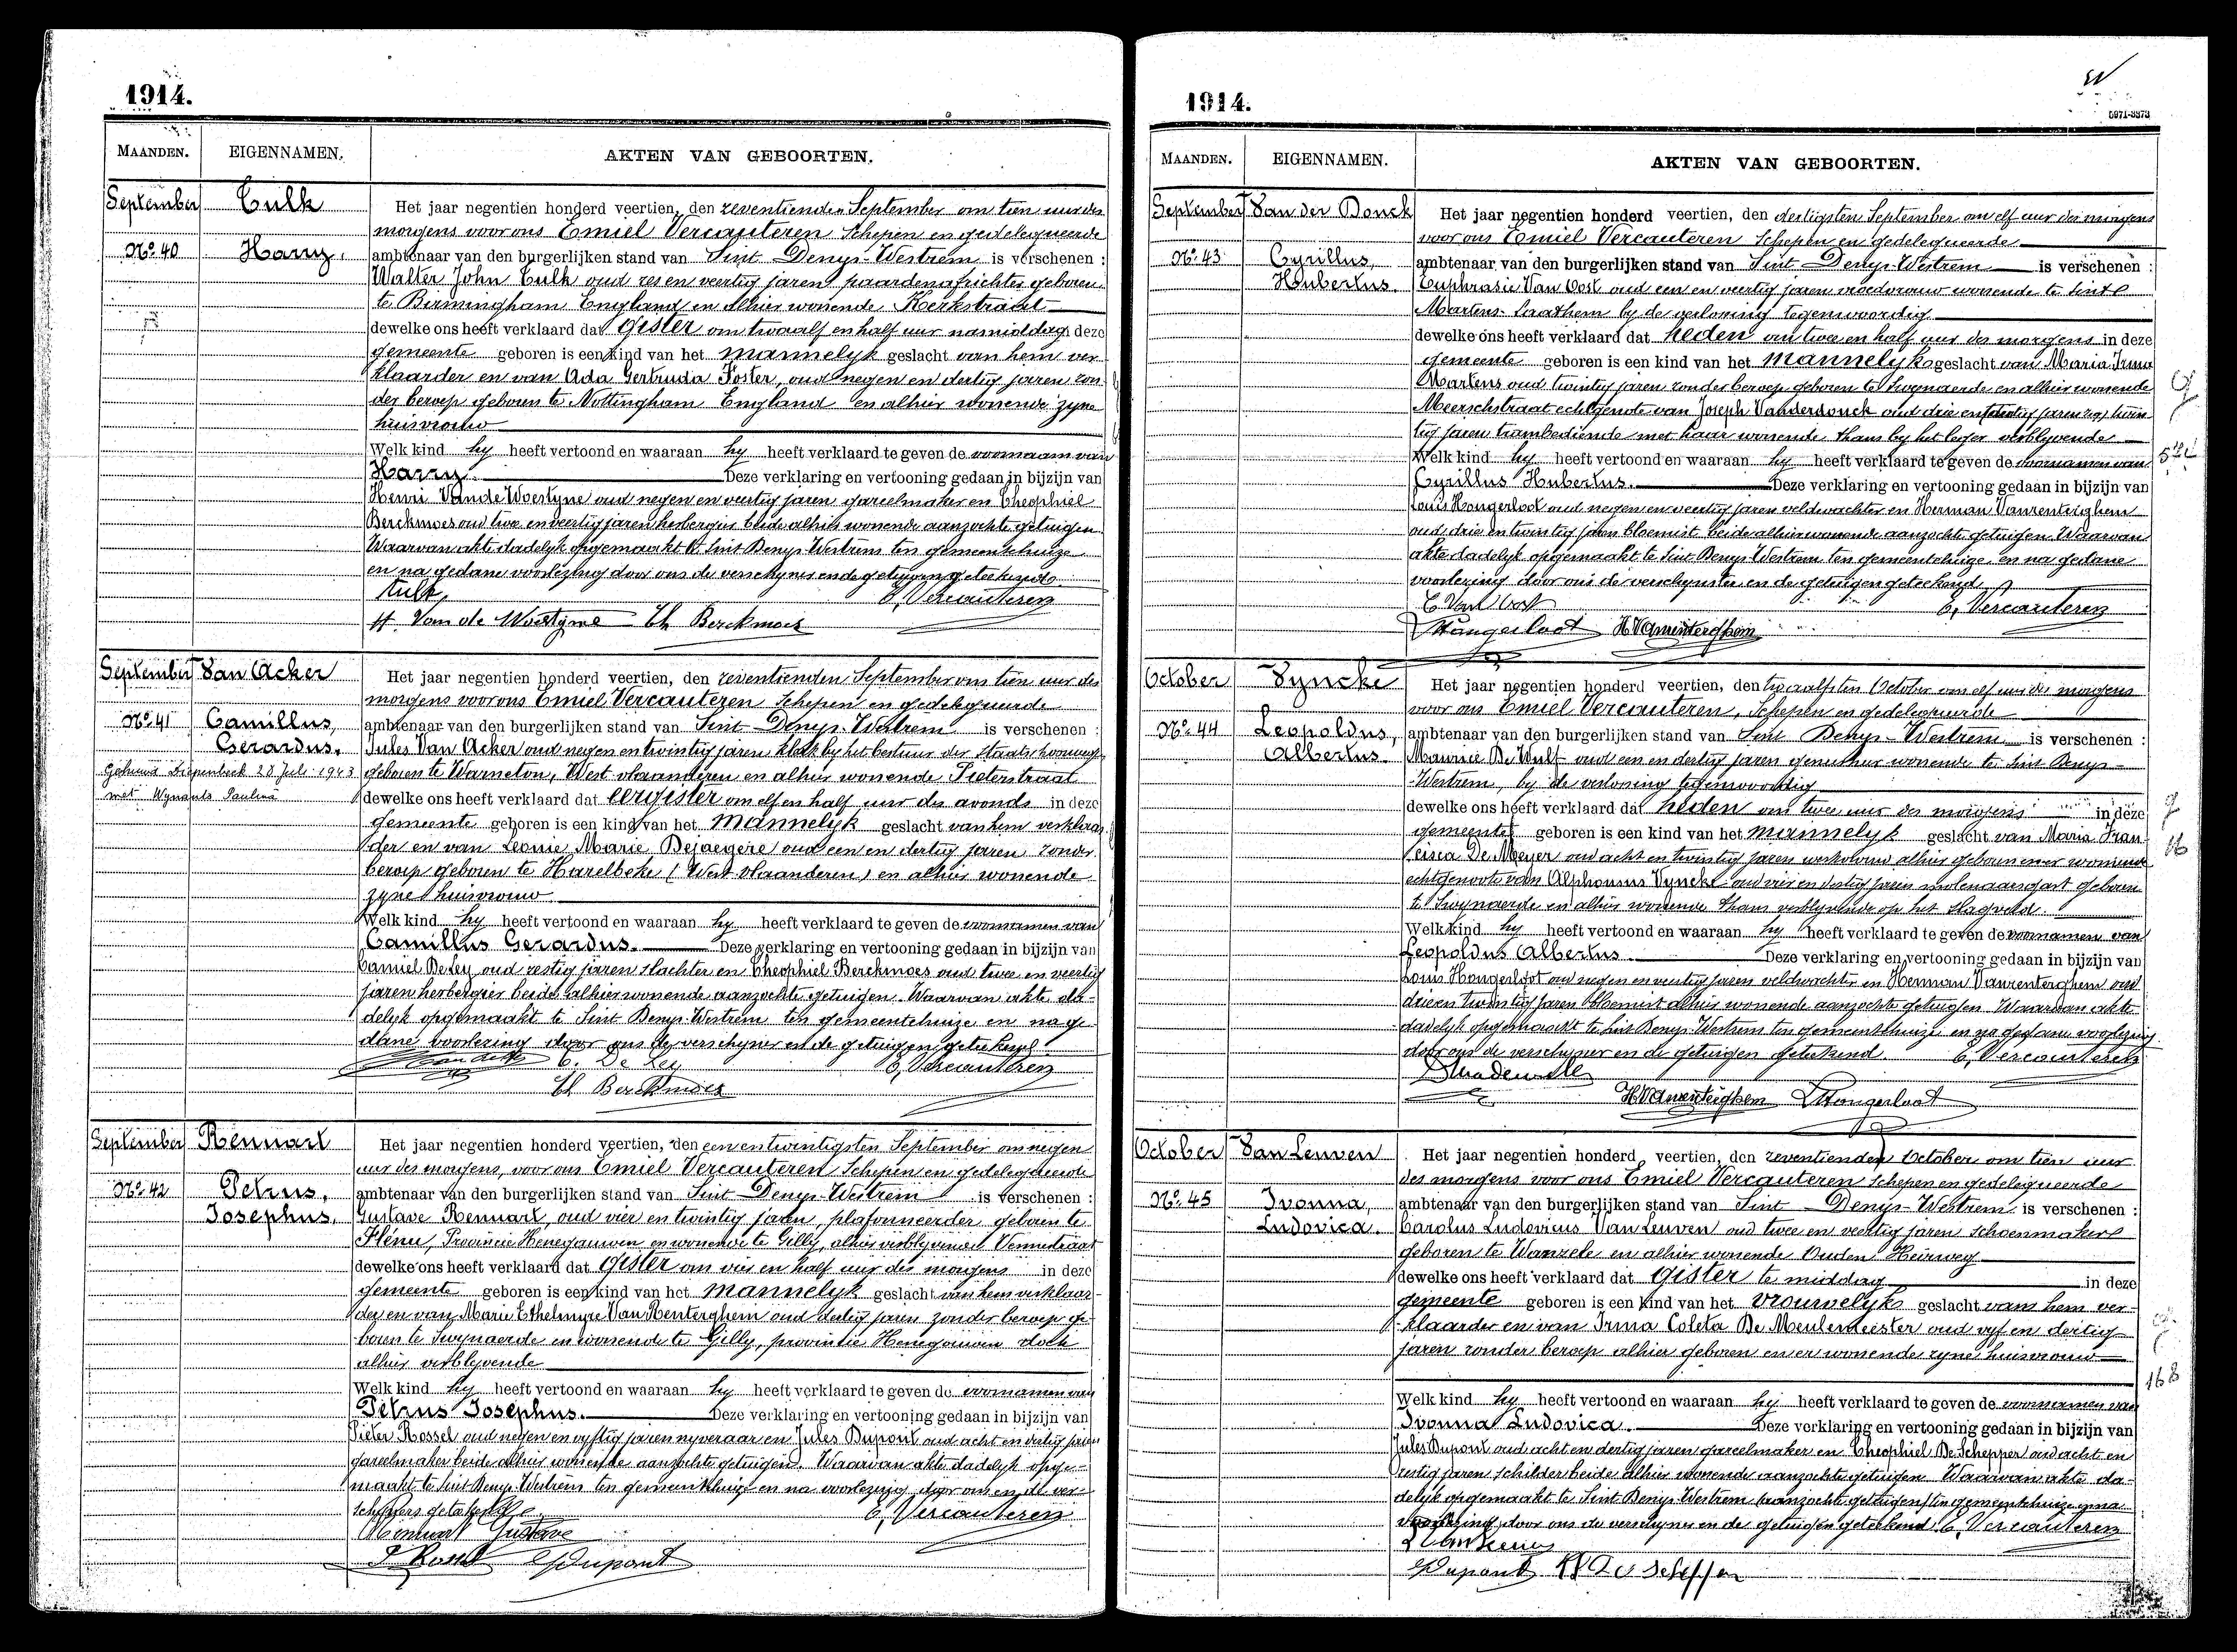 1914.
MAANDEN. EIGENNAMEN. AKTEN VAN GEBOORTEN.
September Tulk Het jaar negentien honderd veertien, den zeventienden September om tien uur des
morgens voor ons Emiel Vercauteren Schepen en gedelegueerde
No. 40 Harry. ambtenaar van den burgerlijken stand van Sint Denys-Westrem is verschenen :
Walter John Tulk oud zes en veertig jaren paardenafrichter geboren
te Birmingham England en alhier wonende Kerkstraat
dewelke ons heeft verklaard dat gister om twaalf en half uur namiddag deze
gemeente geboren is een kind van het mannelyk geslacht van hem ver-
klaarder en van Ada Gertruda Foster, oud negen en dertig jaren zon-
der beroep geboren te Nottingham England en alhier wonende zyne
huisvrouw
Welk kind hy heeft vertoond en waaraan hy heeft verklaard te geven de voornaam van
Harry. Deze verklaring en vertooning gedaan in bijzijn van
Henri Van de Woestyne oud negen en veertig jaren gareelmaker en Theophiel
Berckmoes oud twee en veertig jaren herbergier beide alhier wonende aanzochte getuigen.
Waarvan akte dadelyk opgemaakt te Sint Denys Westrem ten gemeentehuize
en na gedane voorlezing door ons de verschyner en de getuigen geteekend
Tulk E. Vercauteren
H. Van de Woestyne Th Berckmoes
September Van Acker Het jaar negentien honderd veertien, den zeventienden September om tien uur des
morgens voor ons Emiel Vercauteren Schepen en gedelegueerde
No. 41 Camillus, ambtenaar van den burgerlijken stand van Sint Denys-Westrem is verschenen :
Gerardus. Jules Van Acker oud negen en twintig jaren klerk by het bestuur der Staatsspoorwegen
Gehuwd Diepenbeek 28 Juli 1943 geboren te Warneton, West vlaanderen en alhier wonende Pieterstraat
met Wynants Paulina dewelke ons heeft verklaard dat eergister om elf en half uur des avonds in deze
gemeente geboren is een kind van het mannelyk geslacht van hem verklaar-
der en van Leonie Marie Dejaegere oud een en dertig jaren zonder
beroep geboren te Harelbeke (West vlaanderen) en alhier wonende
zyne huisvrouw
Welk kind hy heeft vertoond en waaraan hy heeft verklaard te geven de voornamen van
Camillus Gerardus. Deze verklaring en vertooning gedaan in bijzijn van
Camiel De Ley oud zestig jaren slachter en Theophiel Berckmoes oud twee en veertig
jaren herbergier beide alhier wonende aanzochte getuigen. Waarvan akte da-
delyk opgemaakt te Sint Denys-Westrem ten gemeentehuize en na ge-
dane voorlezing door ons de verschyner en de getuigen geteekend
C. De Ley E. Vercauteren
Th Berckmoes
September Rennart Het jaar negentien honderd veertien, den een en twintigsten September om negen
uur des morgens, voor ons Emiel Vercauteren Schepen en gedelegueerde
No. 42 Petrus, ambtenaar van den burgerlijken stand van Sint Denys-Westrem is verschenen :
Josephus. Gustave Rennart, oud vier en twintig jaren, plafonneerder geboren te
Flénu, Provincie Henegouwen en wonende te Gilly, alhier verblyvende Vennestraat
dewelke ons heeft verklaard dat gister om vier en half uur des morgens in deze
gemeente geboren is een kind van het mannelyk geslacht van hem verklaar-
der en van Marie Ethelmyre Van Renterghem oud dertig jaren zonder beroep ge-
boren te Swynaerde en wonende te Gilly, provincie Henegouwen ook
alhier verblyvende
Welk kind hy heeft vertoond en waaraan hy heeft verklaard te geven de voornamen van
Petrus Josephus. Deze verklaring en vertooning gedaan in bijzijn van
Pieter Rossel oud negen en vyftig jaren nyveraar en Jules Dupont oud acht en dertig jaren
gareelmaker beide alhier wonende aanzochte getuigen. Waarvan akte dadelyk opge-
maakt te Sint Denys Westrem ten gemeentehuize en na voorlezing door ons en de ver-
schyners geteekend
Rennart Gustave E. Vercauteren
P Rossel Dupont
1914.
5971-3373
MAANDEN. EIGENNAMEN. AKTEN VAN GEBOORTEN.
September Van der Donck Het jaar negentien honderd veertien, den dertigsten September om elf uur des morgens
voor ons Emiel Vercauteren Schepen en gedelegueerde
No. 43 Cyrillus, ambtenaar van den burgerlijken stand van Sint Denys-Westrem is verschenen :
Hubertus. Euphrasie Van Oost oud een en veertig jaren vroedvrouw wonende te Sint
Martens-Laathem by de verlossing tegenwoordig
dewelke ons heeft verklaard dat heden om twee en half uur des morgens in deze
gemeente geboren is een kind van het mannelyk geslacht van Maria Irma
Martens oud twintig jaren zonder beroep geboren te Swynaerde en alhier wonende
Meerschstraat echtgenote van Joseph Vanderdonck oud drie en twin-
tig jaren trambediende met haar wonende thans by het leger verblyvende
Welk kind hy heeft vertoond en waaraan hy heeft verklaard te geven de voornamen van
Cyrillus Hubertus. Deze verklaring en vertooning gedaan in bijzijn van
Louis Hongerloot oud negen en veertig jaren veldwachter en Herman Vanrenterghem
oud drie en twintig jaren bloemist beide alhier wonende aanzochte getuigen. Waarvan
akte dadelyk opgemaakt te Sint Denys Westrem ten gemeentehuize en na gedane
voorlezing door ons de verschynster en de getuigen geteekend
E Van Oost E. Vercauteren
LHongerloot HVanrenterghem
October Vyncke Het jaar negentien honderd veertien, den twaalfsten October om elf uur des morgens
voor ons Emiel Vercauteren, Schepen en gedelegueerde
No. 44 Leopoldus, ambtenaar van den burgerlijken stand van Sint Denys-Westrem is verschenen :
Albertus. Maurice De Wulf oud een en dertig jaren geneesheer wonende te Sint Denys-
Westrem, by de verlossing tegenwoordig
dewelke ons heeft verklaard dat heden om twee uur des morgens in deze
gemeente geboren is een kind van het mannelyk geslacht van Maria Fran-
cisca De Meyer oud acht en twintig jaren werkvrouw alhier geboren en er wonende
echtgenoote van Alphonsus Vyncke oud vier en dertig jaren molenaarsgast geboren
te Swynaerde en alhier wonende thans verblyvende op het slagveld.
Welk kind hy heeft vertoond en waaraan hy heeft verklaard te geven de voornamen van
Leopoldus Albertus. Deze verklaring en vertooning gedaan in bijzijn van
Louis Hongerloot oud negen en veertig jaren veldwachter en Herman Vanrenterghem oud
drie en twintig jaren bloemist alhier wonende aanzochte getuigen. Waarvan akte
dadelyk opgemaakt te Sint Denys-Westrem ten gemeentehuize en na gedane voorlezing
door ons de verschyner en de getuigen geteekend. E. Vercauteren
HVanrenterghem LHongerloot
October Van Leuven Het jaar negentien honderd veertien, den zeventienden October om tien uur
des morgens voor ons Emiel Vercauteren Schepen en gedelegueerde
No. 45 Ivonna, ambtenaar van den burgerlijken stand van Sint Denys-Westrem is verschenen :
Ludovica. Carolus Ludovicus Van Leuven oud twee en veertig jaren schoenmaker
geboren te Wanzele en alhier wonende Ouden Heirweg
dewelke ons heeft verklaard dat gister te middag in deze
gemeente geboren is een kind van het vrouwelyk geslacht van hem ver-
klaarder en van Irma Coleta De Meulemeister oud vyf en dertig
jaren zonder beroep alhier geboren en er wonende zyne huisvrouw
Welk kind hy heeft vertoond en waaraan hy heeft verklaard te geven de voornamen van
Ivonna Ludovica. Deze verklaring en vertooning gedaan in bijzijn van
Jules Dupont oud acht en dertig jaren gareelmaker en Theophiel De Schepper oud acht en
zestig jaren schilder beide alhier wonende aanzochte getuigen Waarvan akte da-
delyk opgemaakt te Sint Denys Westrem (aanzochte getuigen) ten gemeentehuize en na
voorlezing door ons de verschyner en de getuigen geteekend. E. Vercauteren
Dupont De Schepper